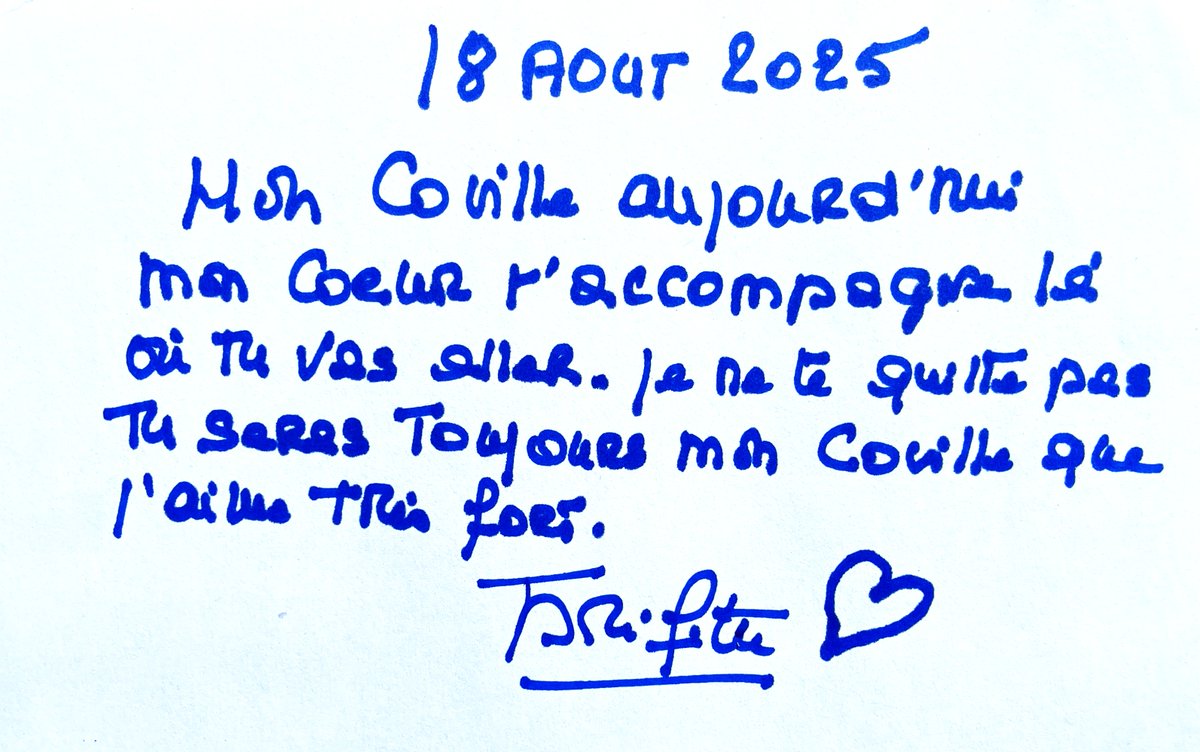 18 AOUT 2025
Mon Coville aujourd'hui
mon Coeur t'accompagne là
où tu vas aller. Je ne te quitte pas
Tu seras Toujours mon Coville que
j'aime très fort.